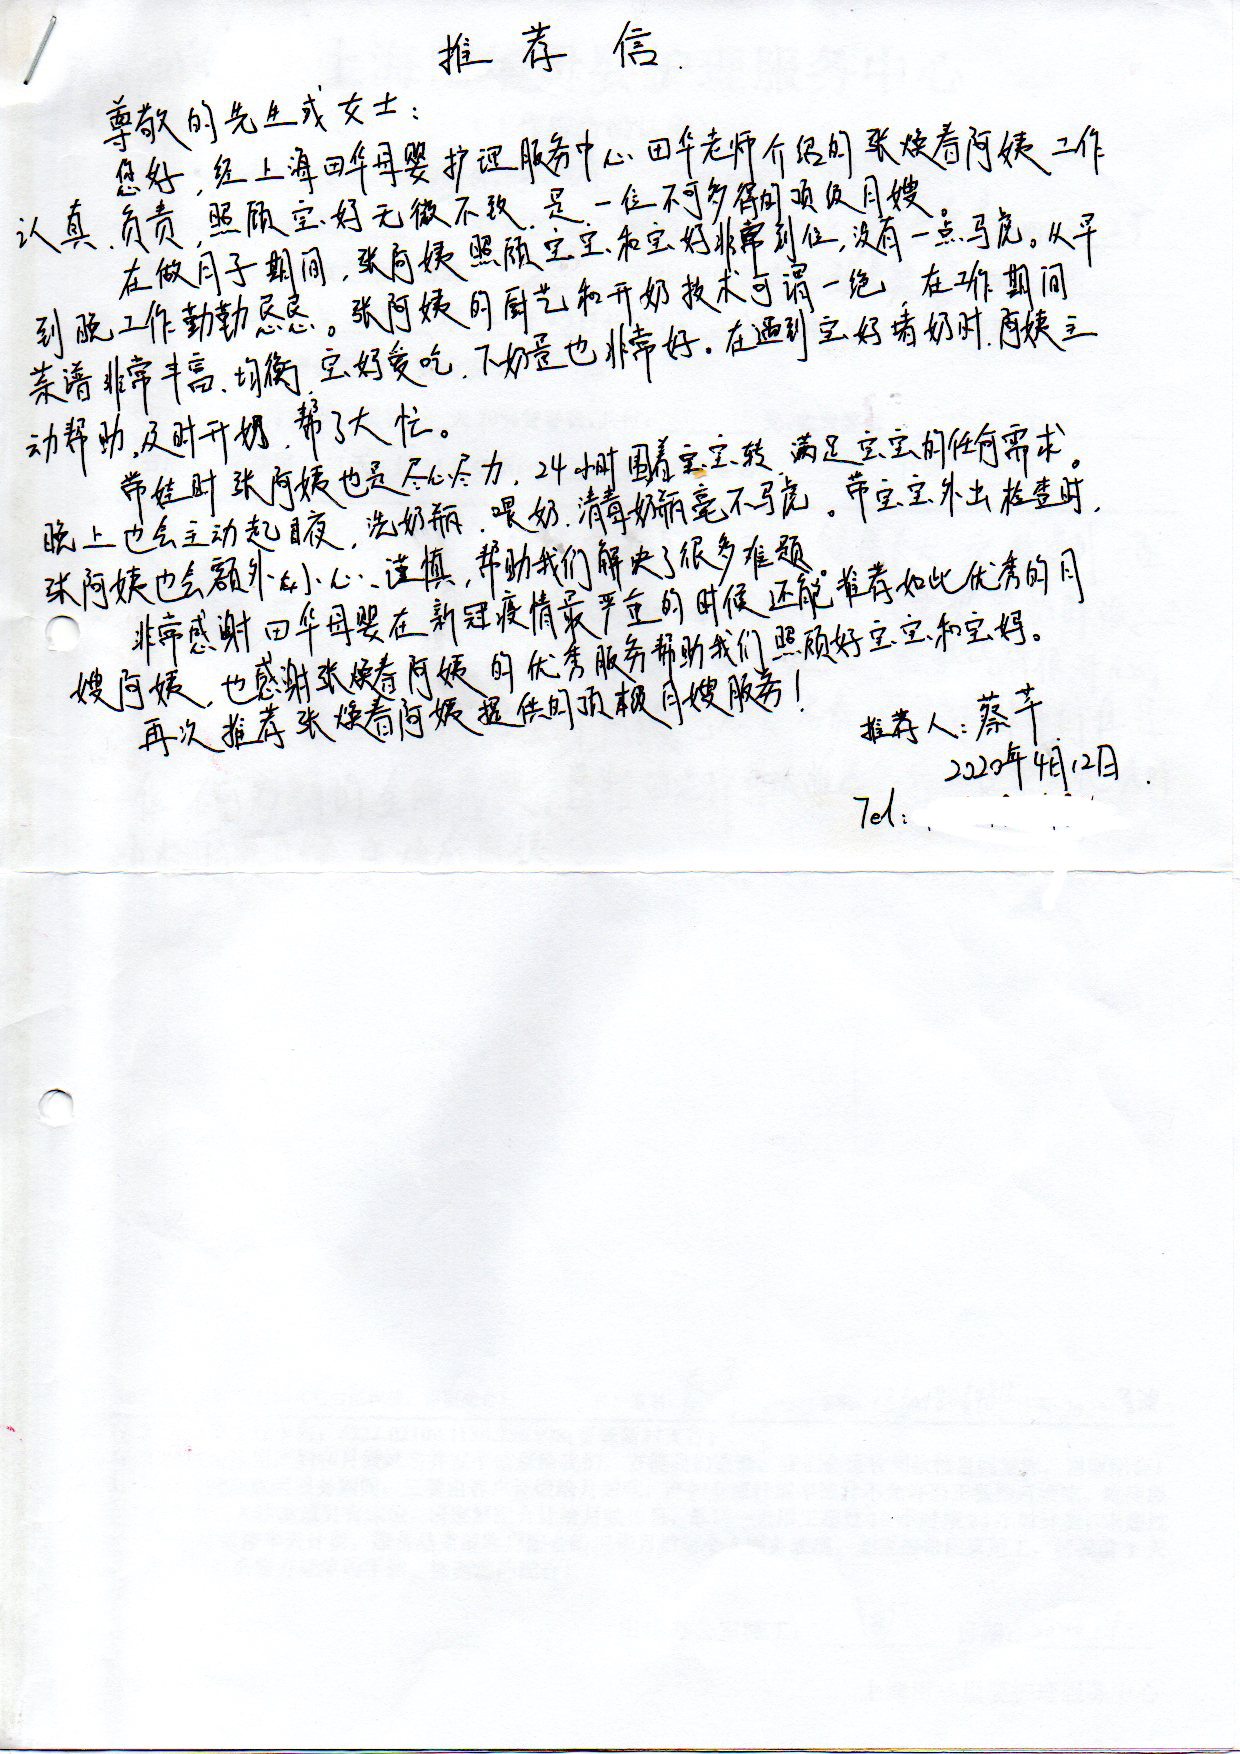 推荐信.
尊敬的先生或女士：
您好，经上海田华母婴护理服务中心田华老师介绍的张焕着阿姨工作
认真、负责，照顾宝妈无微不致，是一位不可多得的顶级月嫂。
在做月子期间，张阿姨照顾宝宝和宝妈非常到位，没有一点马虎。从早
到晚工作勤勤恳恳。张阿姨的厨艺和开奶技术可谓一绝，在工作期间
菜谱非常丰富、均衡，宝妈爱吃，下奶量也非常好。在遇到宝妈堵奶时，阿姨主
动帮助，及时开奶，帮了大忙。
带娃时张阿姨也是尽心尽力，24小时围着宝宝转，满足宝宝的任何需求。
晚上也会主动起夜，洗奶瓶、喂奶、清毒奶瓶毫不马虎。带宝宝外出检查时，
张阿姨也会额外小心、谨慎，帮助我们解决了很多难题。
非常感谢田华母婴在新冠疫情最严重的时候还能推荐如此优秀的月
嫂阿姨，也感谢张焕着阿姨的优秀服务帮助我们照顾好宝宝和宝妈。
再次推荐张焕着阿姨提供的顶级月嫂服务！
推荐人：蔡芊
2020年4月12日.
Tel：